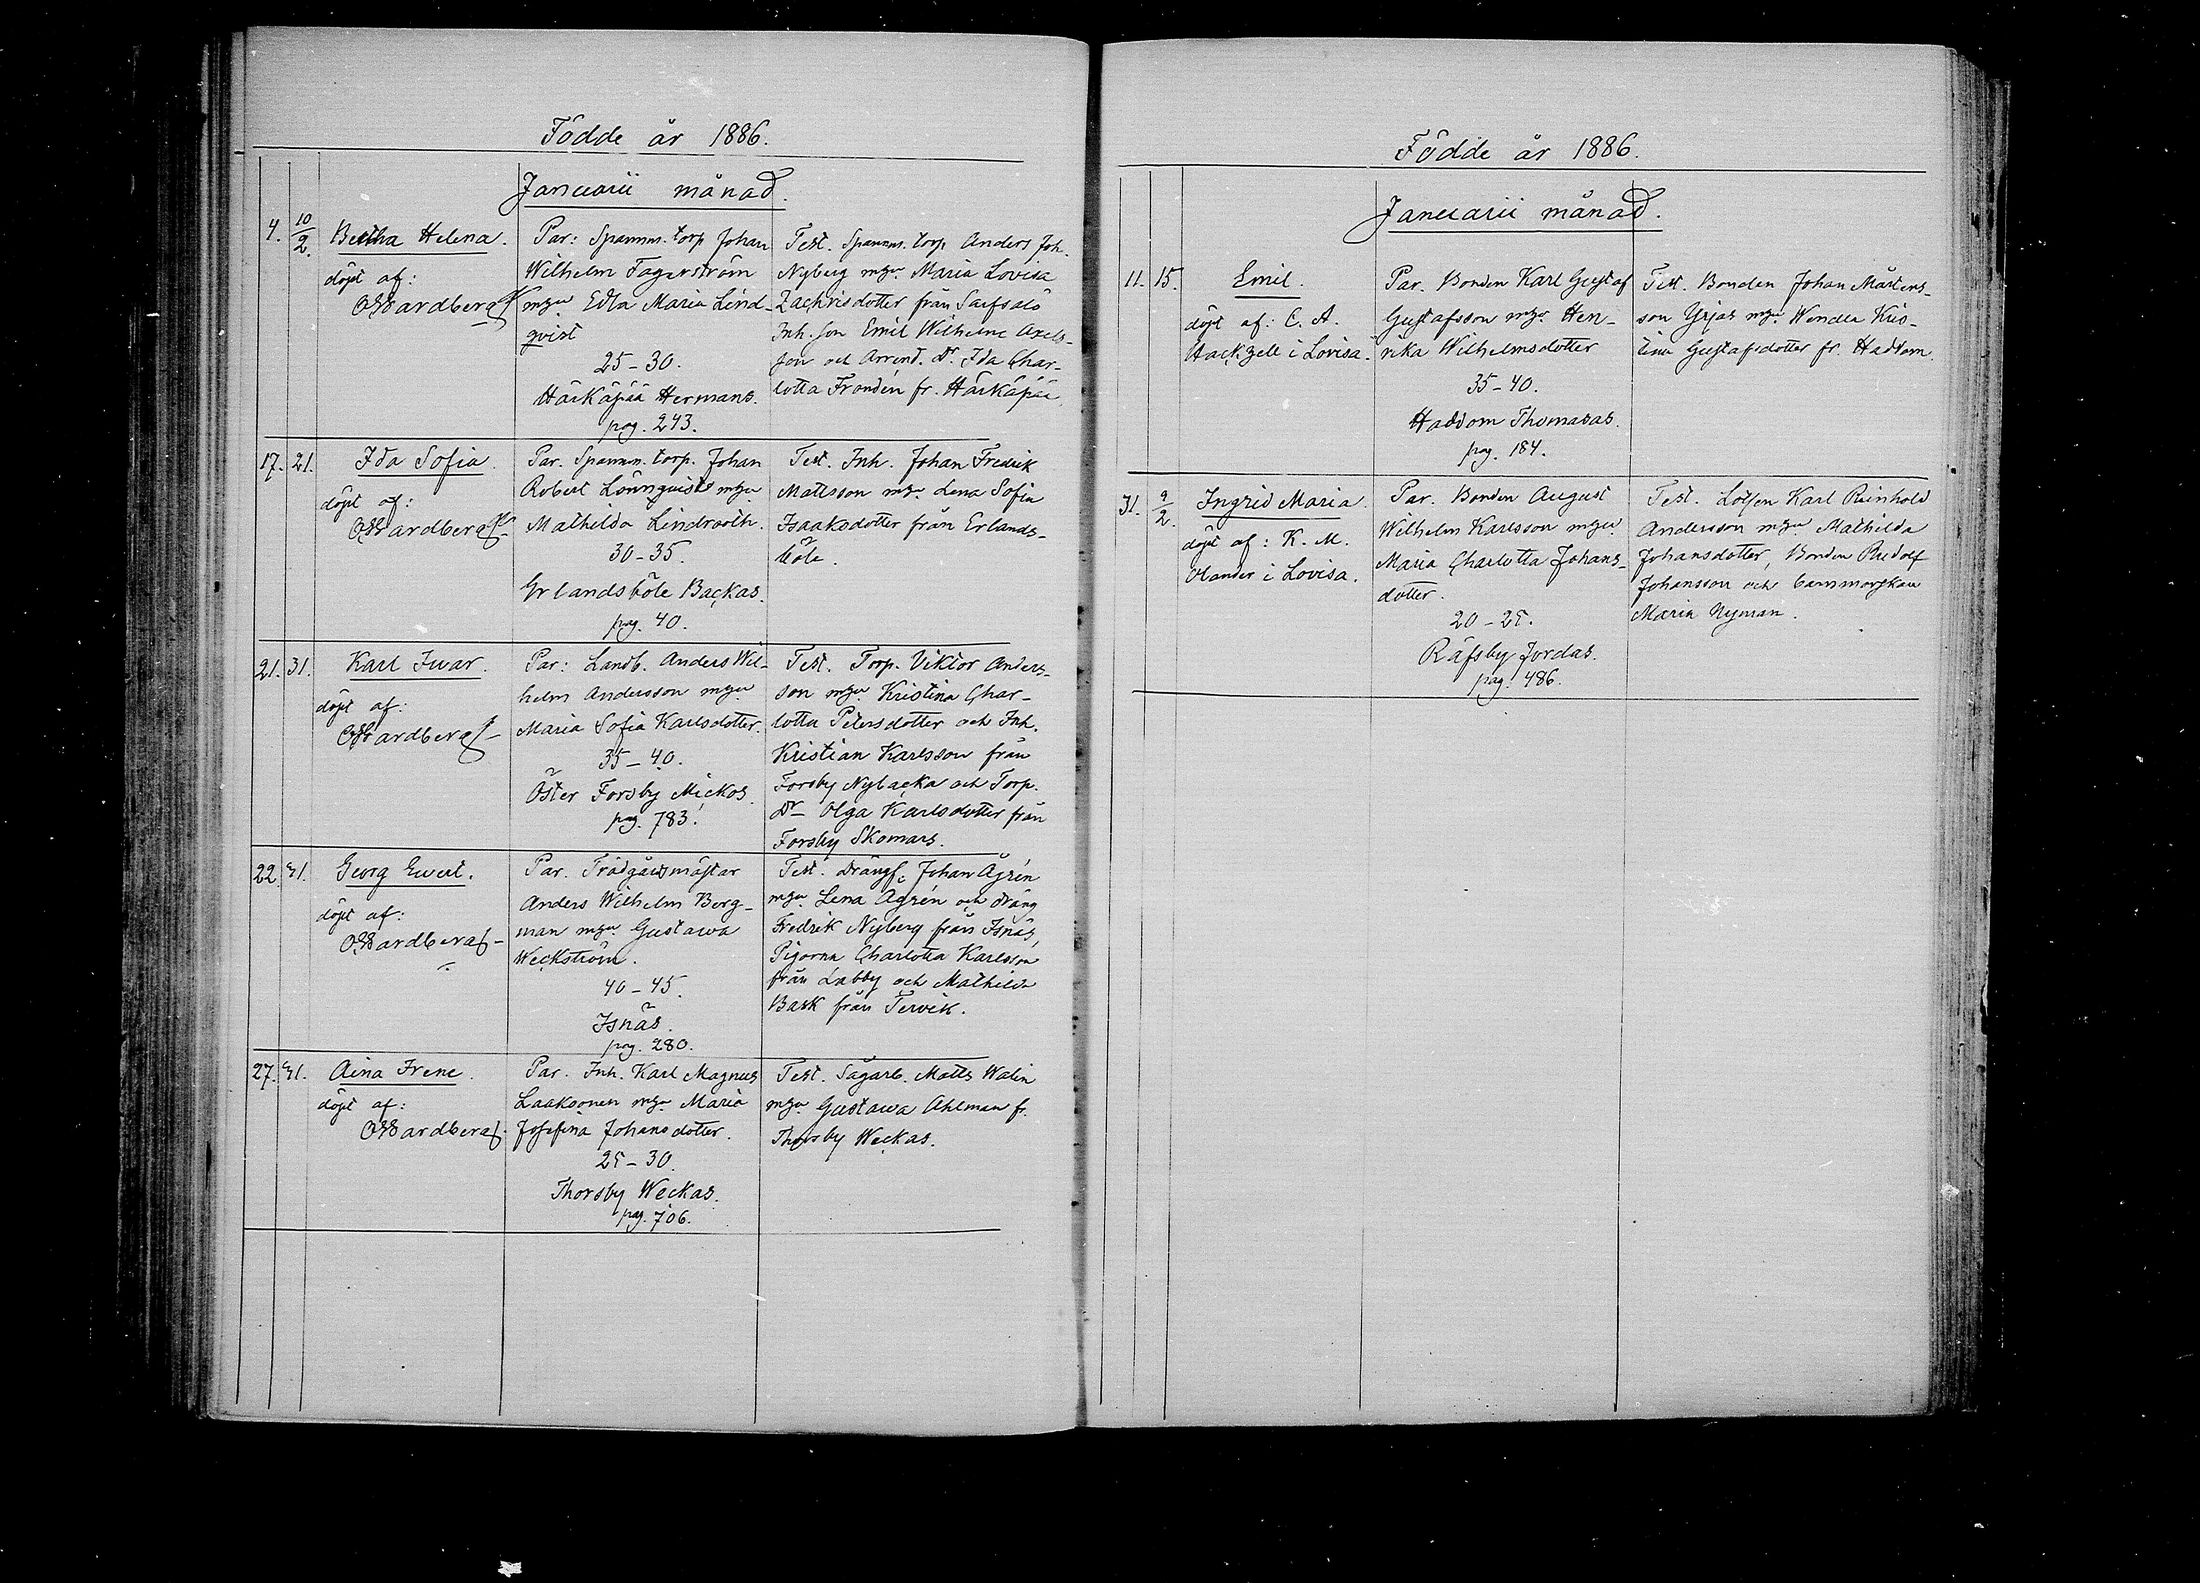 Födde år 1886.
Januarii månad.
4. 10/2. Bertha Helena.
döpt af:
OWardberg
Par: Spannm. torp Johan
Wilhelm Fagerström
mga Edla Maria Lind-
qvist
25-30.
Härkäpää Hermans.
pag. 243.
Test. Spannm. torp Anders Joh.
Nyberg mga Maria Lovisa
Zachrisdotter från Sarfsalö
Inh. son Emil Wilhelm Axels-
son och Arrend. dr Ida Char-
lotta Frondén fr. Härkäpää
17. 21. Ida Sofia.
döpt af:
OWardberg
Par. Spannm. torp. Johan
Robert Lönnqvist mga
Mathilda Lindroth.
30-35.
Erlandsböle Backas.
pag. 40.
Test. Inh. Johan Fredrik
Mattsson mga Lena Sofia
Isaaksdotter från Erlands-
böle.
21. 31. Karl Ivar.
döpt af:
OWardberg
Par: Landb. Anders Wil-
helm Andersson mga
Maria Sofia Karlsdotter.
35-40.
Öster Forsby Mickos.
pag. 783.
Test. Torp. Viktor Anders-
son mga Kristina Char-
lotta Petersdotter och Inh.
Kristian Karlsson från
Forsby Nybacka och Torp.
dr Olga Karlsdotter från
Forsby Skomars.
22. 31. Georg Evert.
döpt af:
OWardberg
Par. Trädgårdsmästar
Anders Wilhelm Berg-
man mga Gustava
Weckström.
40-45.
Isnäs.
pag. 280.
Test. Johan Ågrén
mga Lena Ågrén och dräng
Fredrik Nyberg från Isnäs,
Pigorna Charlotta Karlsson
från Labby och Mathilda
Bask från Tervik.
27. 31. Aina Irene.
döpt af:
OWardberg
Par. Inh. Karl Magnus
Laaksonen mga Maria
Josefina Johansdotter.
25-30.
Thorsby Weckas.
pag. 706.
Test. Sågarb. Matts Walin
mga Gustava Ahlman fr.
Thorsby Weckas.
Födde år 1886.
Januarii månad.
11. 15. Emil.
döpt af: C. A.
Hackzell i Lovisa.
Par. Bonden Karl Gustaf
Gustafsson mga Hen-
rika Wilhelmsdotter
35-40.
Haddom Thomasas.
pag. 184.
Test. Bonden Johan Mårtens-
son mga Wendla Kris-
tina Gustafsdotter fr. Haddom.
31. 9/2. Ingrid Maria.
döpt af: K. M.
Olander i Lovisa.
Par. Bonden August
Wilhelm Karlsson mga
Maria Charlotta Johans-
dotter.
20-25.
Räfsby Jordas.
pag. 486.
Test. Lotsen Karl Reinhold
Andersson mga Mathilda
Johansdotter, Bonden Rudolf
Johansson och barnmorskan
Maria Nyman.